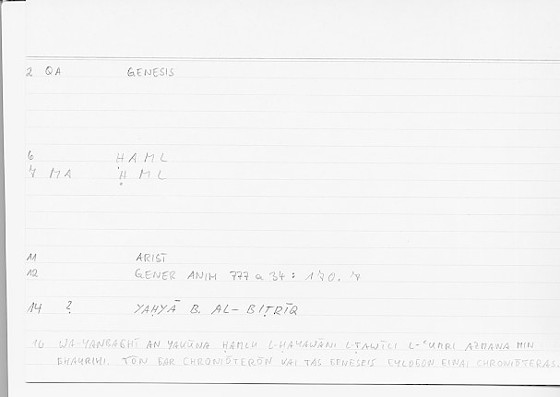 2 QA GENESIS
6 ḤAML
7 MA Ḥ M L
11 ARIST
12 GENER ANIM 777 a 34 : 170. 7
14 ? YAḤYĀ B. AL-BIṬRĪQ
16 WA YANBAGHĪ AN YAKŪNA ḤAMLU L-ḤAYAWĀNI L-ṬAWĪLI L-ʿUMRI AZMANA MIN
GHAYRIHI. TŌN GAR CHRONIŌTERŌN KAI TAS GENESEIS EYLOGON EINAI CHRONIŌTERAS.